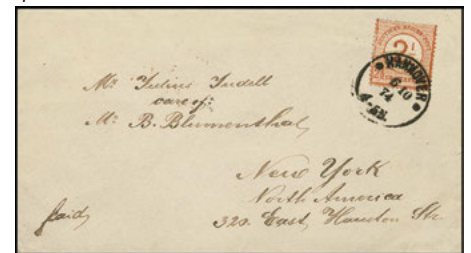 2½
HANNOVER
6 10
74
4-5N.
Mr Julius Judell
care of:
Mr B. Blumenthal,
New York
North America
320. East, Houston Str.
paid,